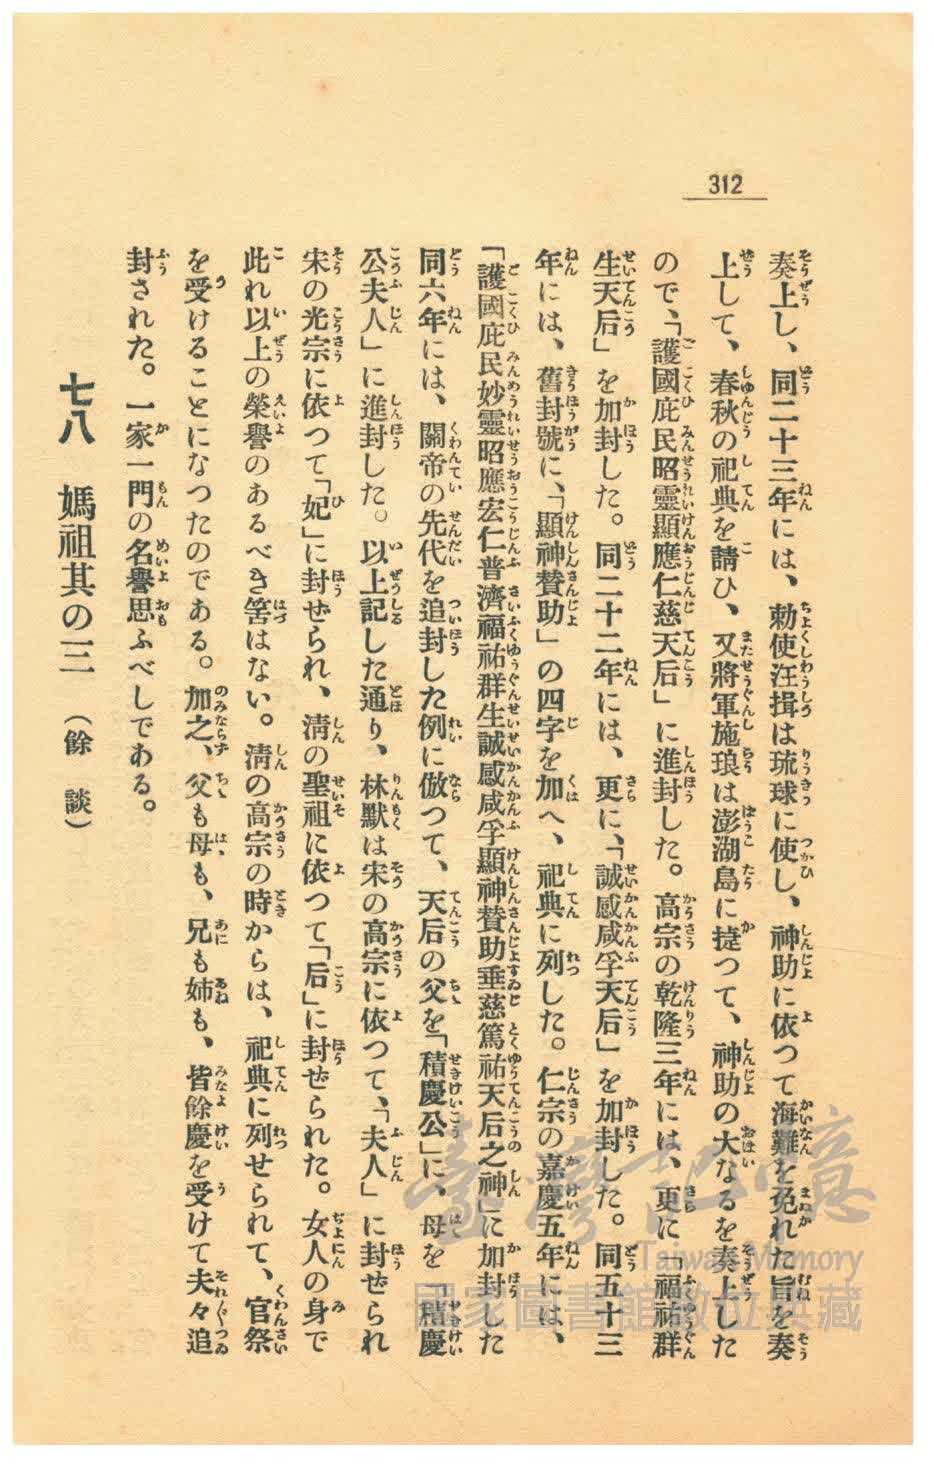 312
奏上し、同二十三年には、勅使汪揖は琉球に使し、神助に依つて海難を免れた旨を奏
上して、春秋の祀典を請ひ、又將軍施琅は澎湖島に㨗つて、神助の大なるを奏上した
ので、「護國庇民昭靈顯應仁慈天后」に進封した。高宗の乾隆三年には、更に「福祐群
生天后」を加封した。同二十二年には、更に、「誠感咸孚天后」を加封した。同五十三
年には、舊封號に、「顯神賛助」の四字を加へ、祀典に列した。仁宗の嘉慶五年には、
「護國庇民妙靈昭應宏仁普濟福祐群生誠感咸孚顯神賛助垂慈篤祐天后之神」に加封した
同六年には、關帝の先代を追封した例に倣つて、天后の父を「積慶公」に、母を「積慶
公夫人」に進封した。以上記した通り、林默は宋の高宗に依つて、「夫人」に封ぜられ
宋の光宗に依つて「妃」に封ぜられ、淸の聖祖に依つて「后」に封ぜられた。女人の身で
此れ以上の榮譽のあるべき筈はない。淸の高宗の時からは、祀典に列せられて、官祭
を受けることになつたのである。加之、父も母も、兄も姉も、皆餘慶を受けて夫々追
封された。一家一門の名譽思ふべしである。
七八 媽祖其の三 （餘 談）
臺灣記憶
Taiwan Memory
國家圖書館數位典藏